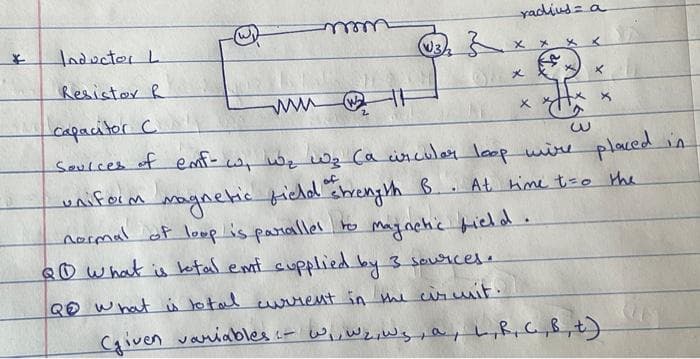 radius = a
W1
W3
* Inductor L
Resistor R
W2
capacitor C
ω
Sources of emf - ω1 ω2 ω3 (a circular loop wire placed in
uniform magnetic field of strength B. At time t=0 the
normal of loop is parallel to magnetic field.
Q① What is total emf supplied by 3 sources.
Q② What is total current in the circuit.
(given variables :- ω1, ω2, ω3, a, L, R, C, B, t)